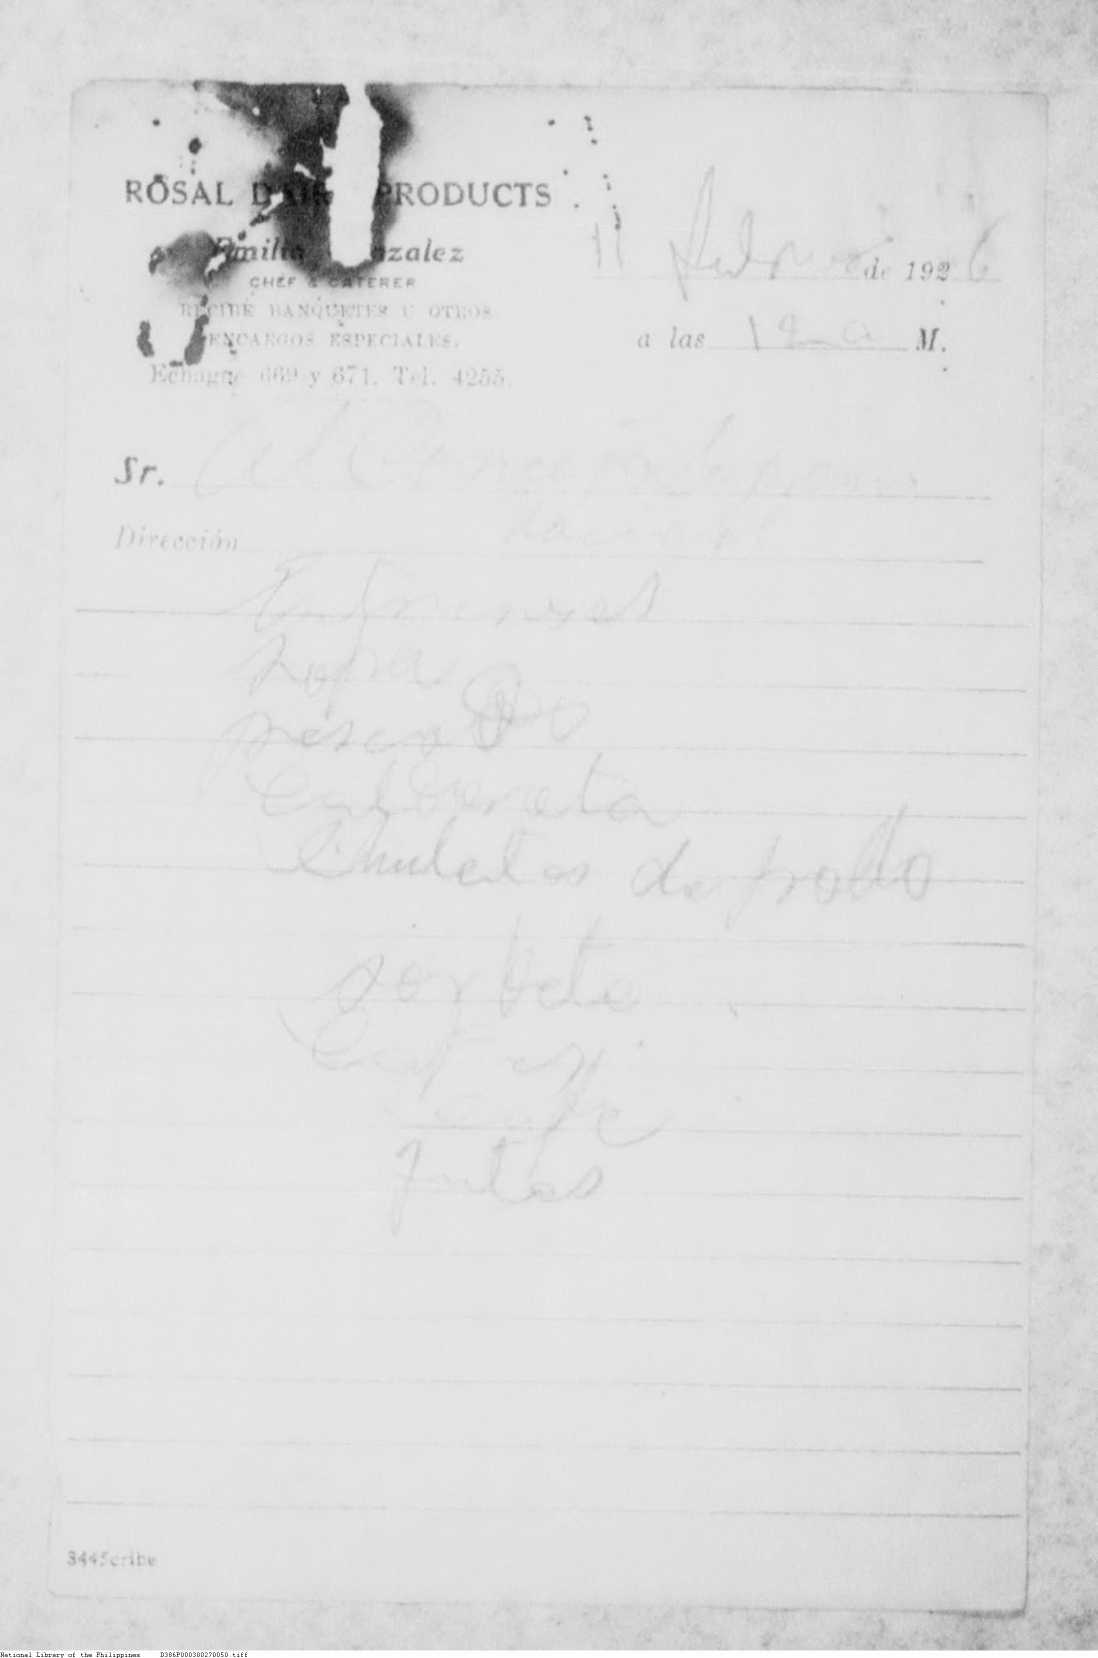 ROSAL DAIRY PRODUCTS
Emilio Gonzalez
CHEF & CATERER
RECIBE BANQUETES U OTROS
ENCARGOS ESPECIALES.
Echague 669 y 671. Tel. 4255.
11 de 1926
a las 12 a M.
Sr.
Dirección
Entremeses
Sopa
pescado
Caldereta
Chuletas de pollo
sorbete
Cafe
frutas
3445cribe
National Library of the Philippines D386P000300270050.tiff